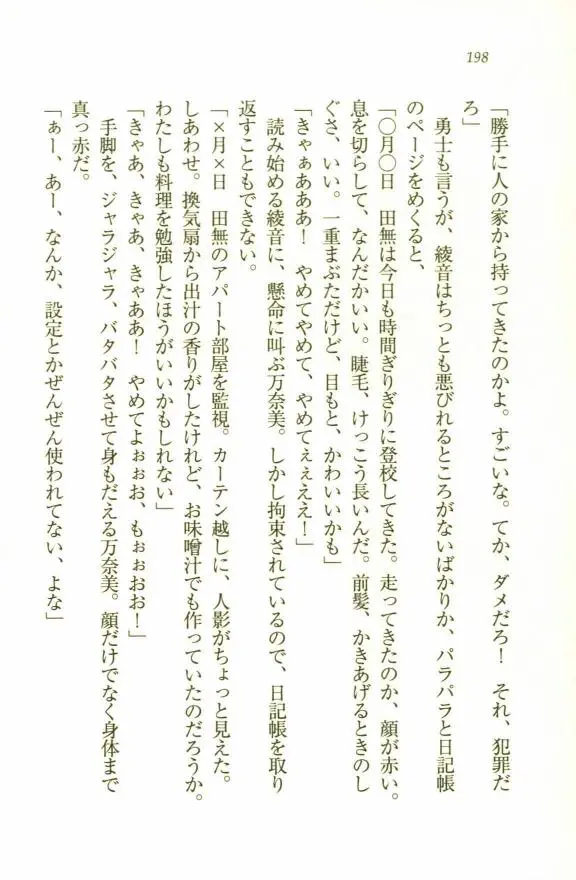 198
「勝手に人の家から持ってきたのかよ。すごいな。てか、ダメだろ！　それ、犯罪だ
ろ」
　勇士も言うが、綾音はちっとも悪びれるところがないばかりか、パラパラと日記帳
のページをめくると、
「○月○日　田無は今日も時間ぎりぎりに登校してきた。走ってきたのか、顔が赤い。
息を切らして、なんだかいい。睫毛、けっこう長いんだ。前髪、かきあげるときのし
ぐさ、いい。一重まぶただけど、目もと、かわいいかも」
「きゃぁあああ！　やめてやめて、やめてぇぇええ！」
　読み始める綾音に、懸命に叫ぶ万奈美。しかし拘束されているので、日記帳を取り
返すこともできない。
「×月×日　田無のアパート部屋を監視。カーテン越しに、人影がちょっと見えた。
しあわせ。換気扇から出汁の香りがしたけれど、お味噌汁でも作っていたのだろうか。
わたしも料理を勉強したほうがいいかもしれない」
「きゃあ、きゃあ、きゃああ！　やめてよぉぉお、もぉぉおお！」
　手脚を、ジャラジャラ、バタバタさせて身もだえる万奈美。顔だけでなく身体まで
真っ赤だ。
「ぁー、あー、なんか、設定とかぜんぜん使われてない、よな」